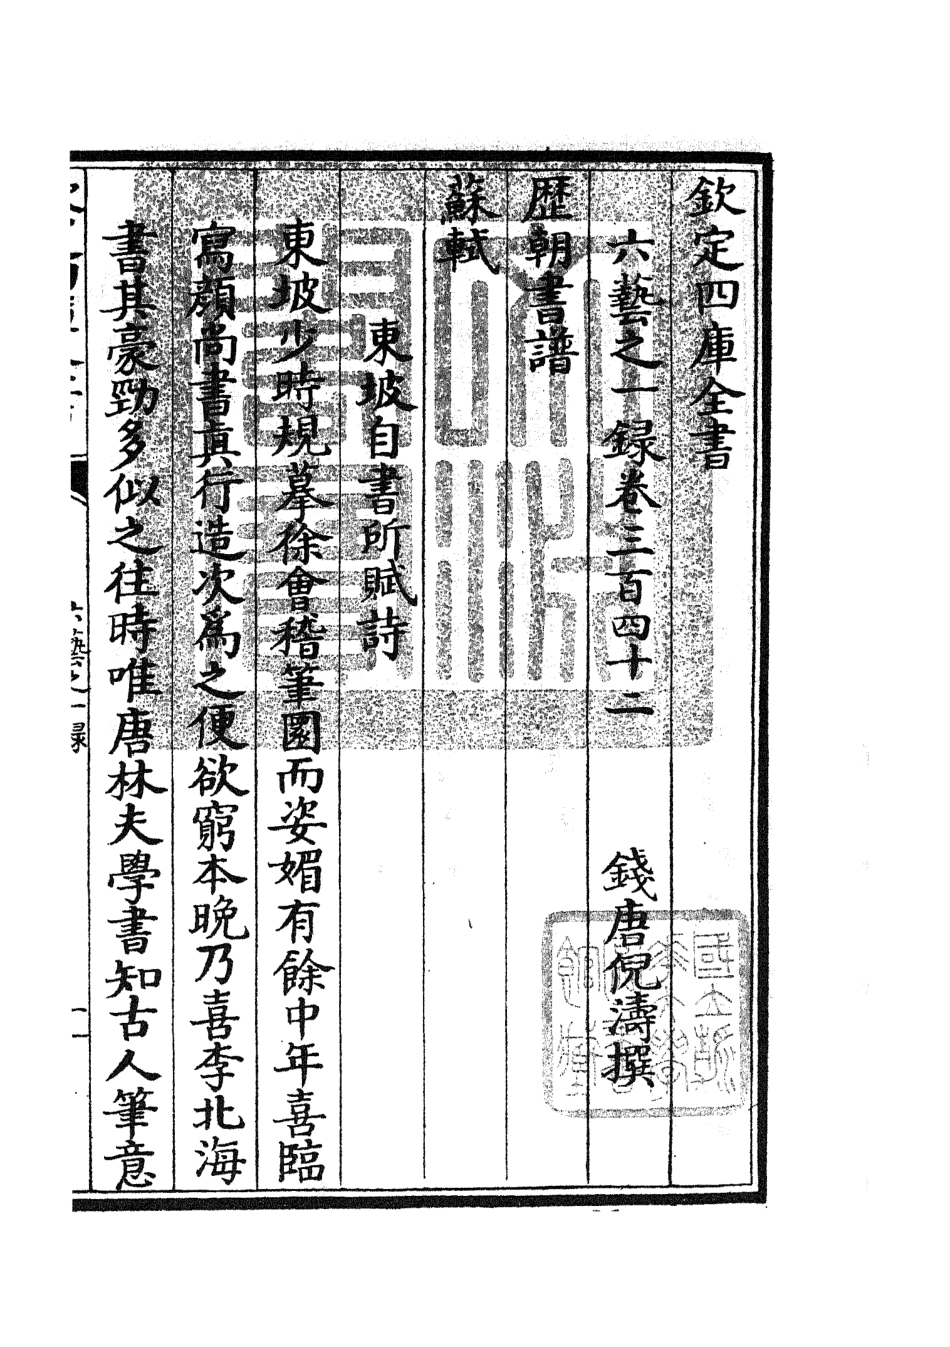 欽定四庫全書
六藝之一録卷三百四十二
錢唐倪濤撰
歴朝書譜
蘇軾
東坡自書所賦詩
東坡少時規摹徐會稽筆圓而姿媚有餘中年喜臨
寫顔尚書真行造次爲之便欲窮本晚乃喜李北海
書其豪勁多似之往時唯唐林夫學書知古人筆意
六藝之一録
一